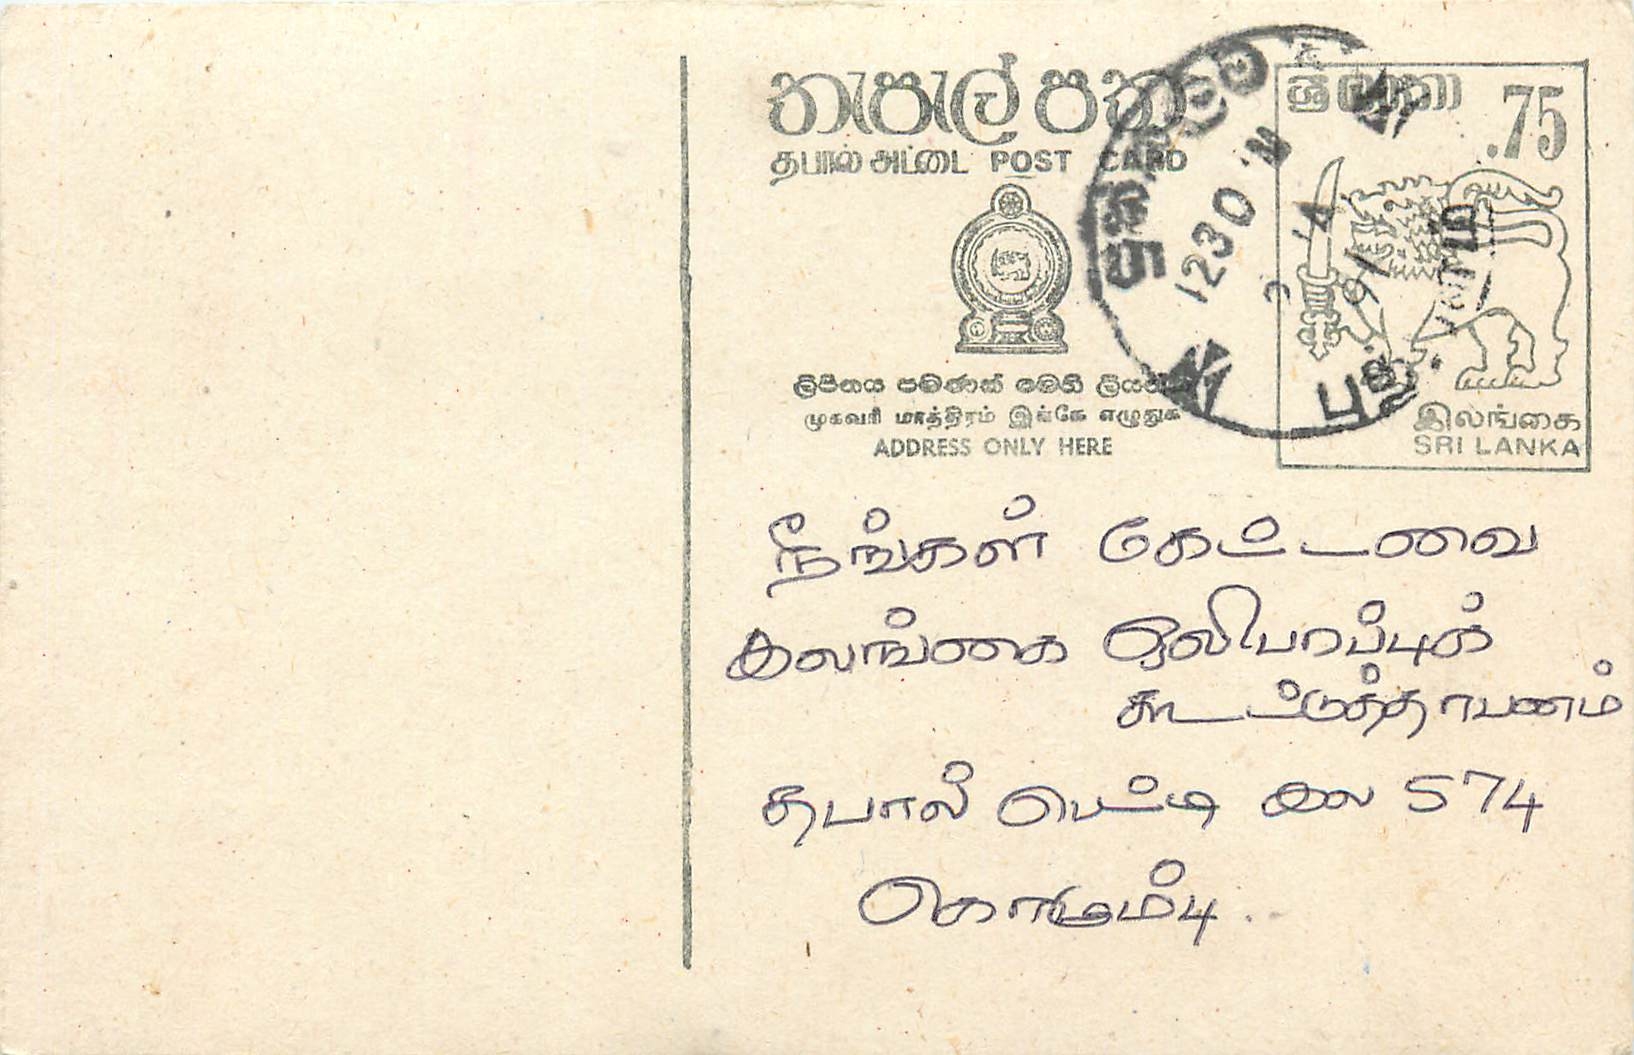 තැපැල් පත
தபால் அட்டை POST CARD
ශ්‍රී ලංකා .75
1230
91
ලිපිනය පමණක් මෙහි ලියන්න
முகவரி மாத்திரம் இங்கே எழுதுக
ADDRESS ONLY HERE
இலங்கை
SRI LANKA
நீங்கள் கேட்டவை
இலங்கை ஒலிபரப்புக்
கூட்டுத்தாபனம்
தபால் பெட்டி இல 574
கொழும்பு.